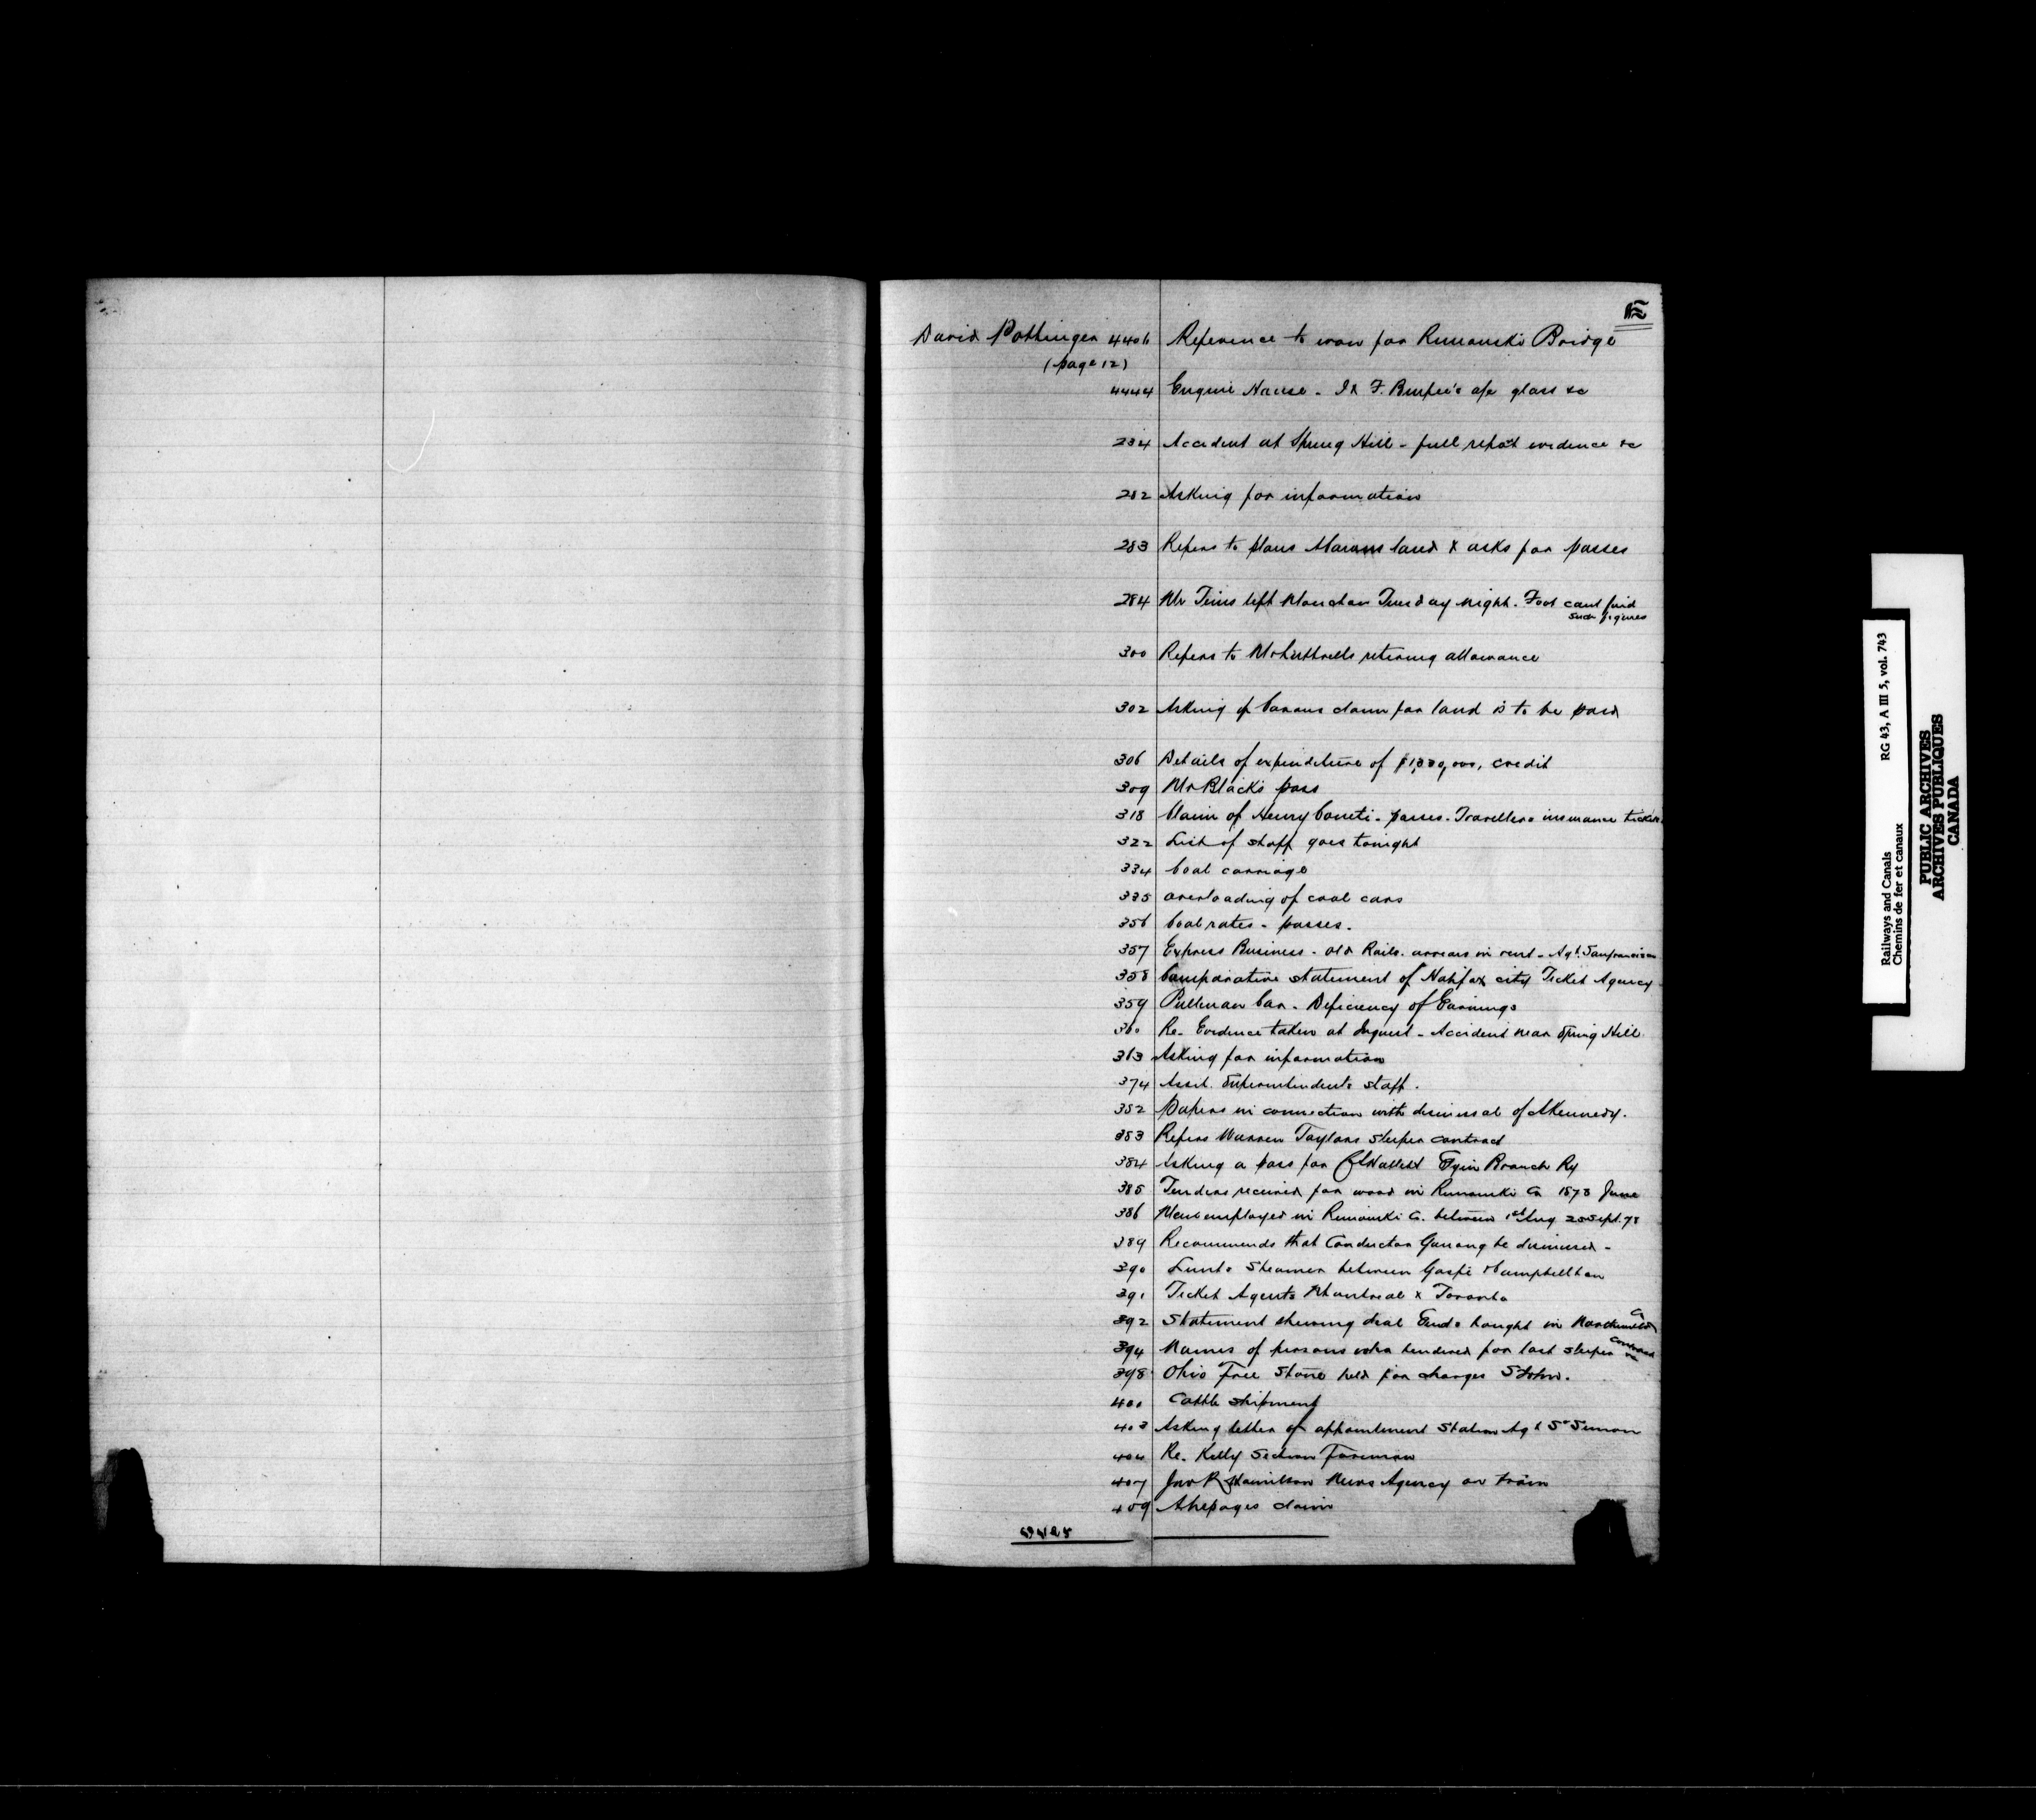 12
David Pottinger 4406 Reference to iron for Rimouski Bridge
(page 12)
4444 Engine House - I & F. Burpee's a/c glass &c
234 Accident at Spring Hill - full report evidence &c
282 Asking for information
283 Refers to plans land & asks for passes
284 Mr Tims left Moncton Tuesday night. Foot cant find
such figures
300 Refers to Mr Luttrells retiring allowance
302 Asking if claim for land is to be paid
306 Details of expenditure of credit
309 Mr Blacks pass
318 Claim of Henry - passes - Travellers insurance tickets
322 List of staff goes tonight
334 Coal carriage
335 overloading of coal cars
356 Coal rates - passes.
357 Express Business - old Rails. arrears in rent - Agt. Sanfrancisco
358 Comparative statement of Halifax city Ticket Agency
359 Pullman Car - Deficiency of Earnings
360 Re. Evidence taken at Inquest - Accident near Spring Hill
363 Asking for information
374 Asst. Superintendents staff.
382 Papers in connection with dismissal of A Kennedy.
383 Refers Warren Taylors Sleeper contract
384 Asking a pass for Elgin Branch Ry
385 Tenders received for wood in Rimouski Co 1878 June
386 Men employed in Rimouski Co. between 1st Aug 25 Sept. 78
389 Recommends that Conductor Ganong be dismissed -
390 Lunts Steamer between Gaspé & Campbellton
391 Ticket Agents Montreal & Toronto
392 Statement shewing deal Ends bought in Northumbld Co
394 Names of persons who tendered for last sleeper contract
398 Ohio Free Stone held for charges St John.
400 Cattle shipment
403 Asking letter of appointment Station Agt St Simon
404 Re. Kelly Section Foreman
407 Jno R Hamilton News Agency on train
409 claim
RG 43, A III 5, vol. 743
Railways and Canals
Chemins de fer et canaux
PUBLIC ARCHIVES
ARCHIVES PUBLIQUES
CANADA